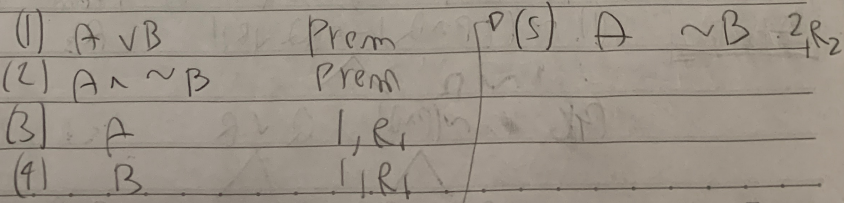 (1) A ∨ B Prem
(2) A ∧ ~B Prem
(3) A 1, R1
(4) B 1, R1
(5) A ~B 2, R2